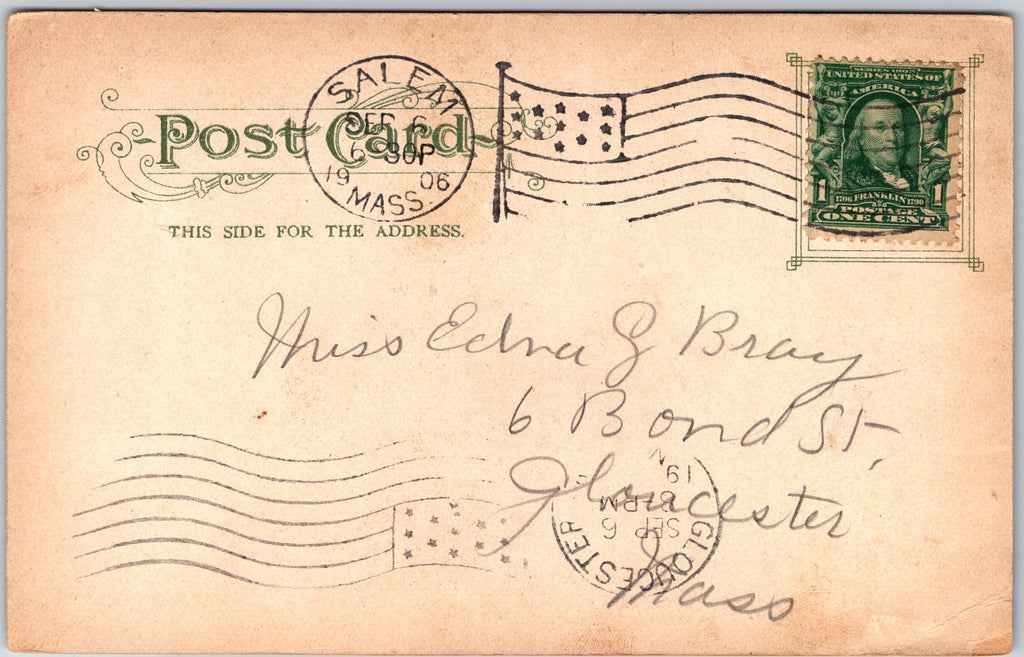 Post Card
THIS SIDE FOR THE ADDRESS.
SALEM
SEP 6
6 30P
19 06
MASS.
SERIES 1902
UNITED STATES OF
AMERICA
1 1
1706 FRANKLIN 1790
POSTAGE
ONE CENT
Miss Edna G Bray
6 Bond St,
Gloucester
Mass
GLOUCESTER
SEP 6
8-PM
19